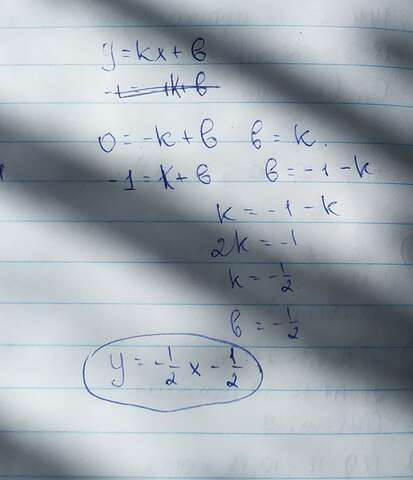 y = kx + в
-1 = 1k + в
0 = -k + в   в = k.
-1 = k + в   в = -1 - k
k = -1 - k
2k = -1
k = -1/2.
в = -1/2
y = -1/2 x - 1/2